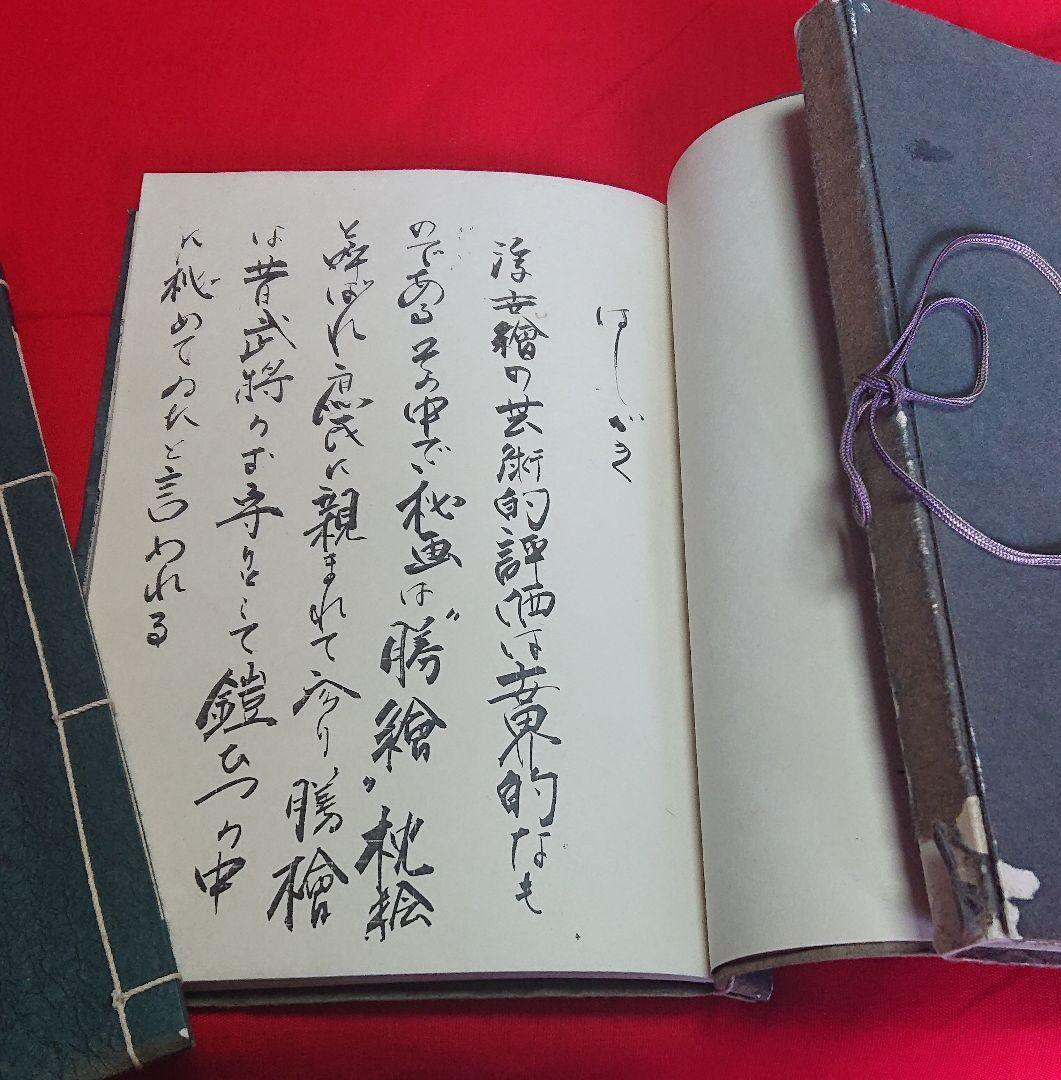 はしがき
浮世繪の芸術的評価は世界的なも
のであるその中で秘画は〝勝繪〟枕絵
と呼ばれ庶民に親まれて参り勝檜
は昔武将のお守りとして鎧ひつの中
に秘めてゐたと言われる